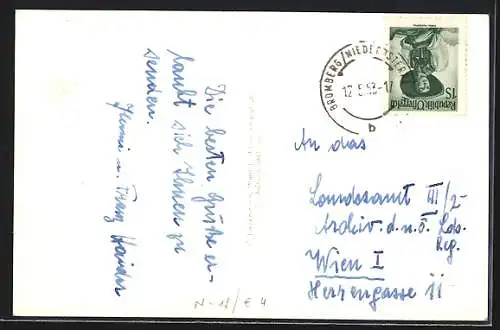 Die besten Grüße er-
laubt sich Ihnen zu
senden.
u. Franz Haider
BROMBERG/NIEDERÖSTER
12.5.53-17
b
Republik Österreich
1S
An das
Landesamt III/2-
Archiv d. n. ö. Lds.
Reg.
Wien I
Herrengasse 11
N-18/€ 4